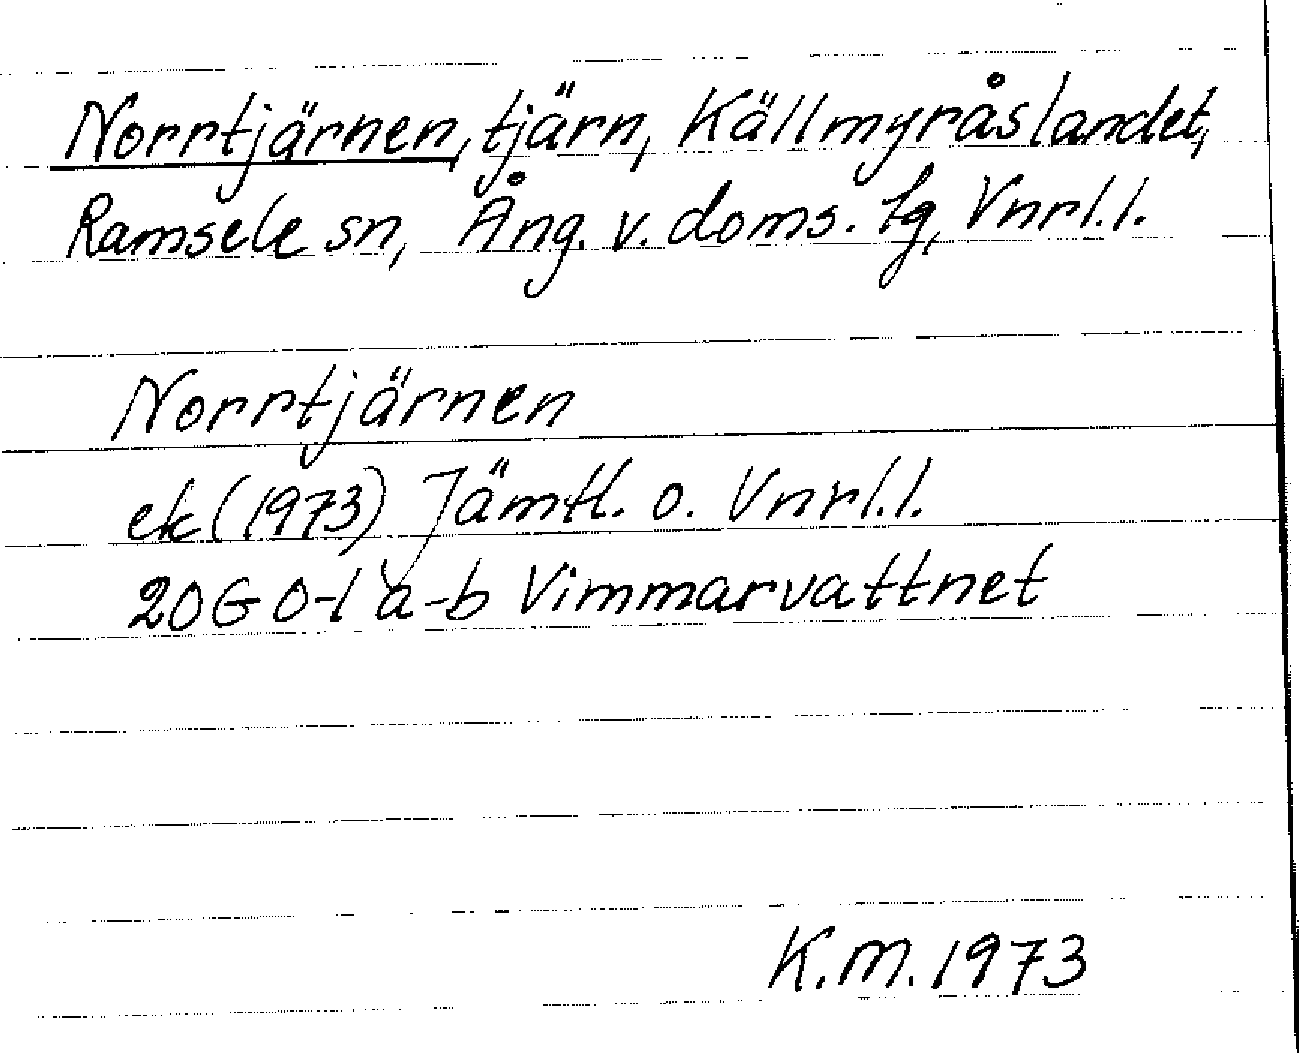 Norrtjärnen, tjärn, Källmyråslandet,
Ramsele sn, Ång. v. doms. tg, Vnrl.l.
Norrtjärnen
ek (1973) Jämtl. o. Vnrl.l.
20G 0-1 a-b Vimmarvattnet
K.M. 1973